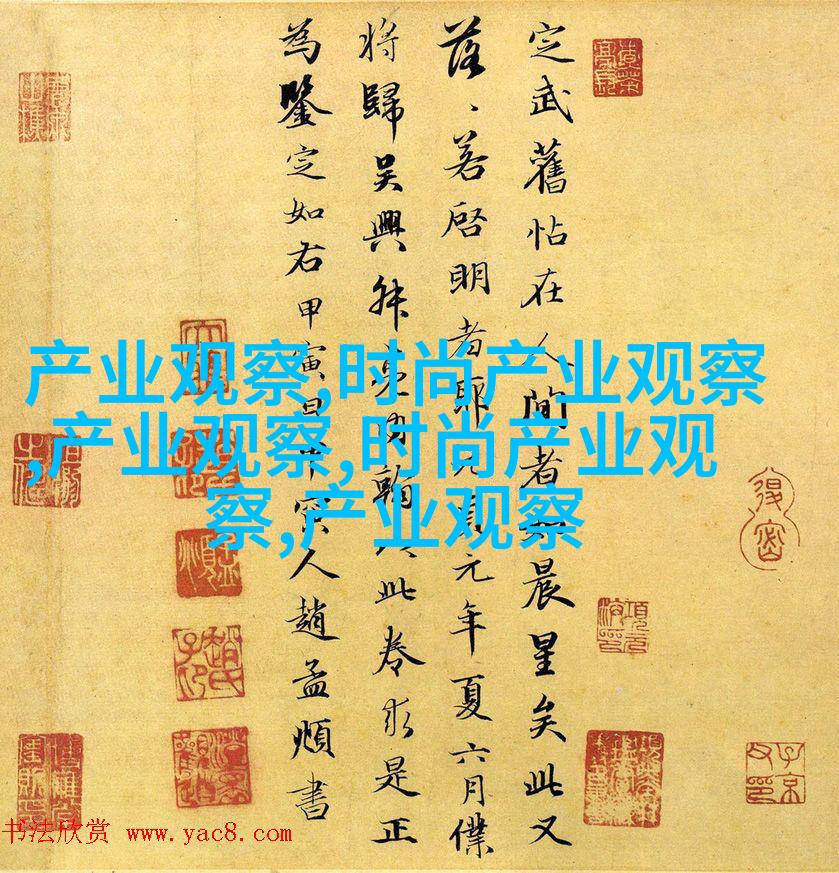 定武舊帖在人間者如晨星矣此又
落、若啓明者耶元貞元年夏六月僕
将歸吳興叔亮内翰以此卷求是正
為鑒定如右甲寅日甲寅人趙孟頫書
产业观察,时尚产业观察
,产业观察,时尚产业观
察,产业观察
书法欣赏 www.yac8.com